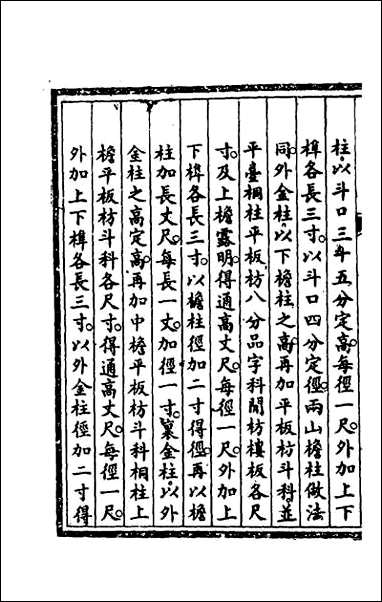 柱。以斗口三十五分定高。每徑一尺。外加上下
榫各長三寸。以斗口四分定徑。兩山檐柱做法
同。外金柱。以下檐柱之高。再加平板枋斗科。並
平臺桐柱平板枋八分品字科間枋樓板各尺
寸。及上檐露明。得通高丈尺。每徑一尺。外加上
下榫各長三寸。以檐柱徑加二寸得徑。再以檐
柱加長丈尺。每長一丈。加徑一寸。裏金柱。以外
金柱之高定高。再加中檐平板枋斗科桐柱上
檐平板枋斗科各尺寸。得通高丈尺。每徑一尺。
外加上下榫各長三寸。以外金柱徑加二寸得